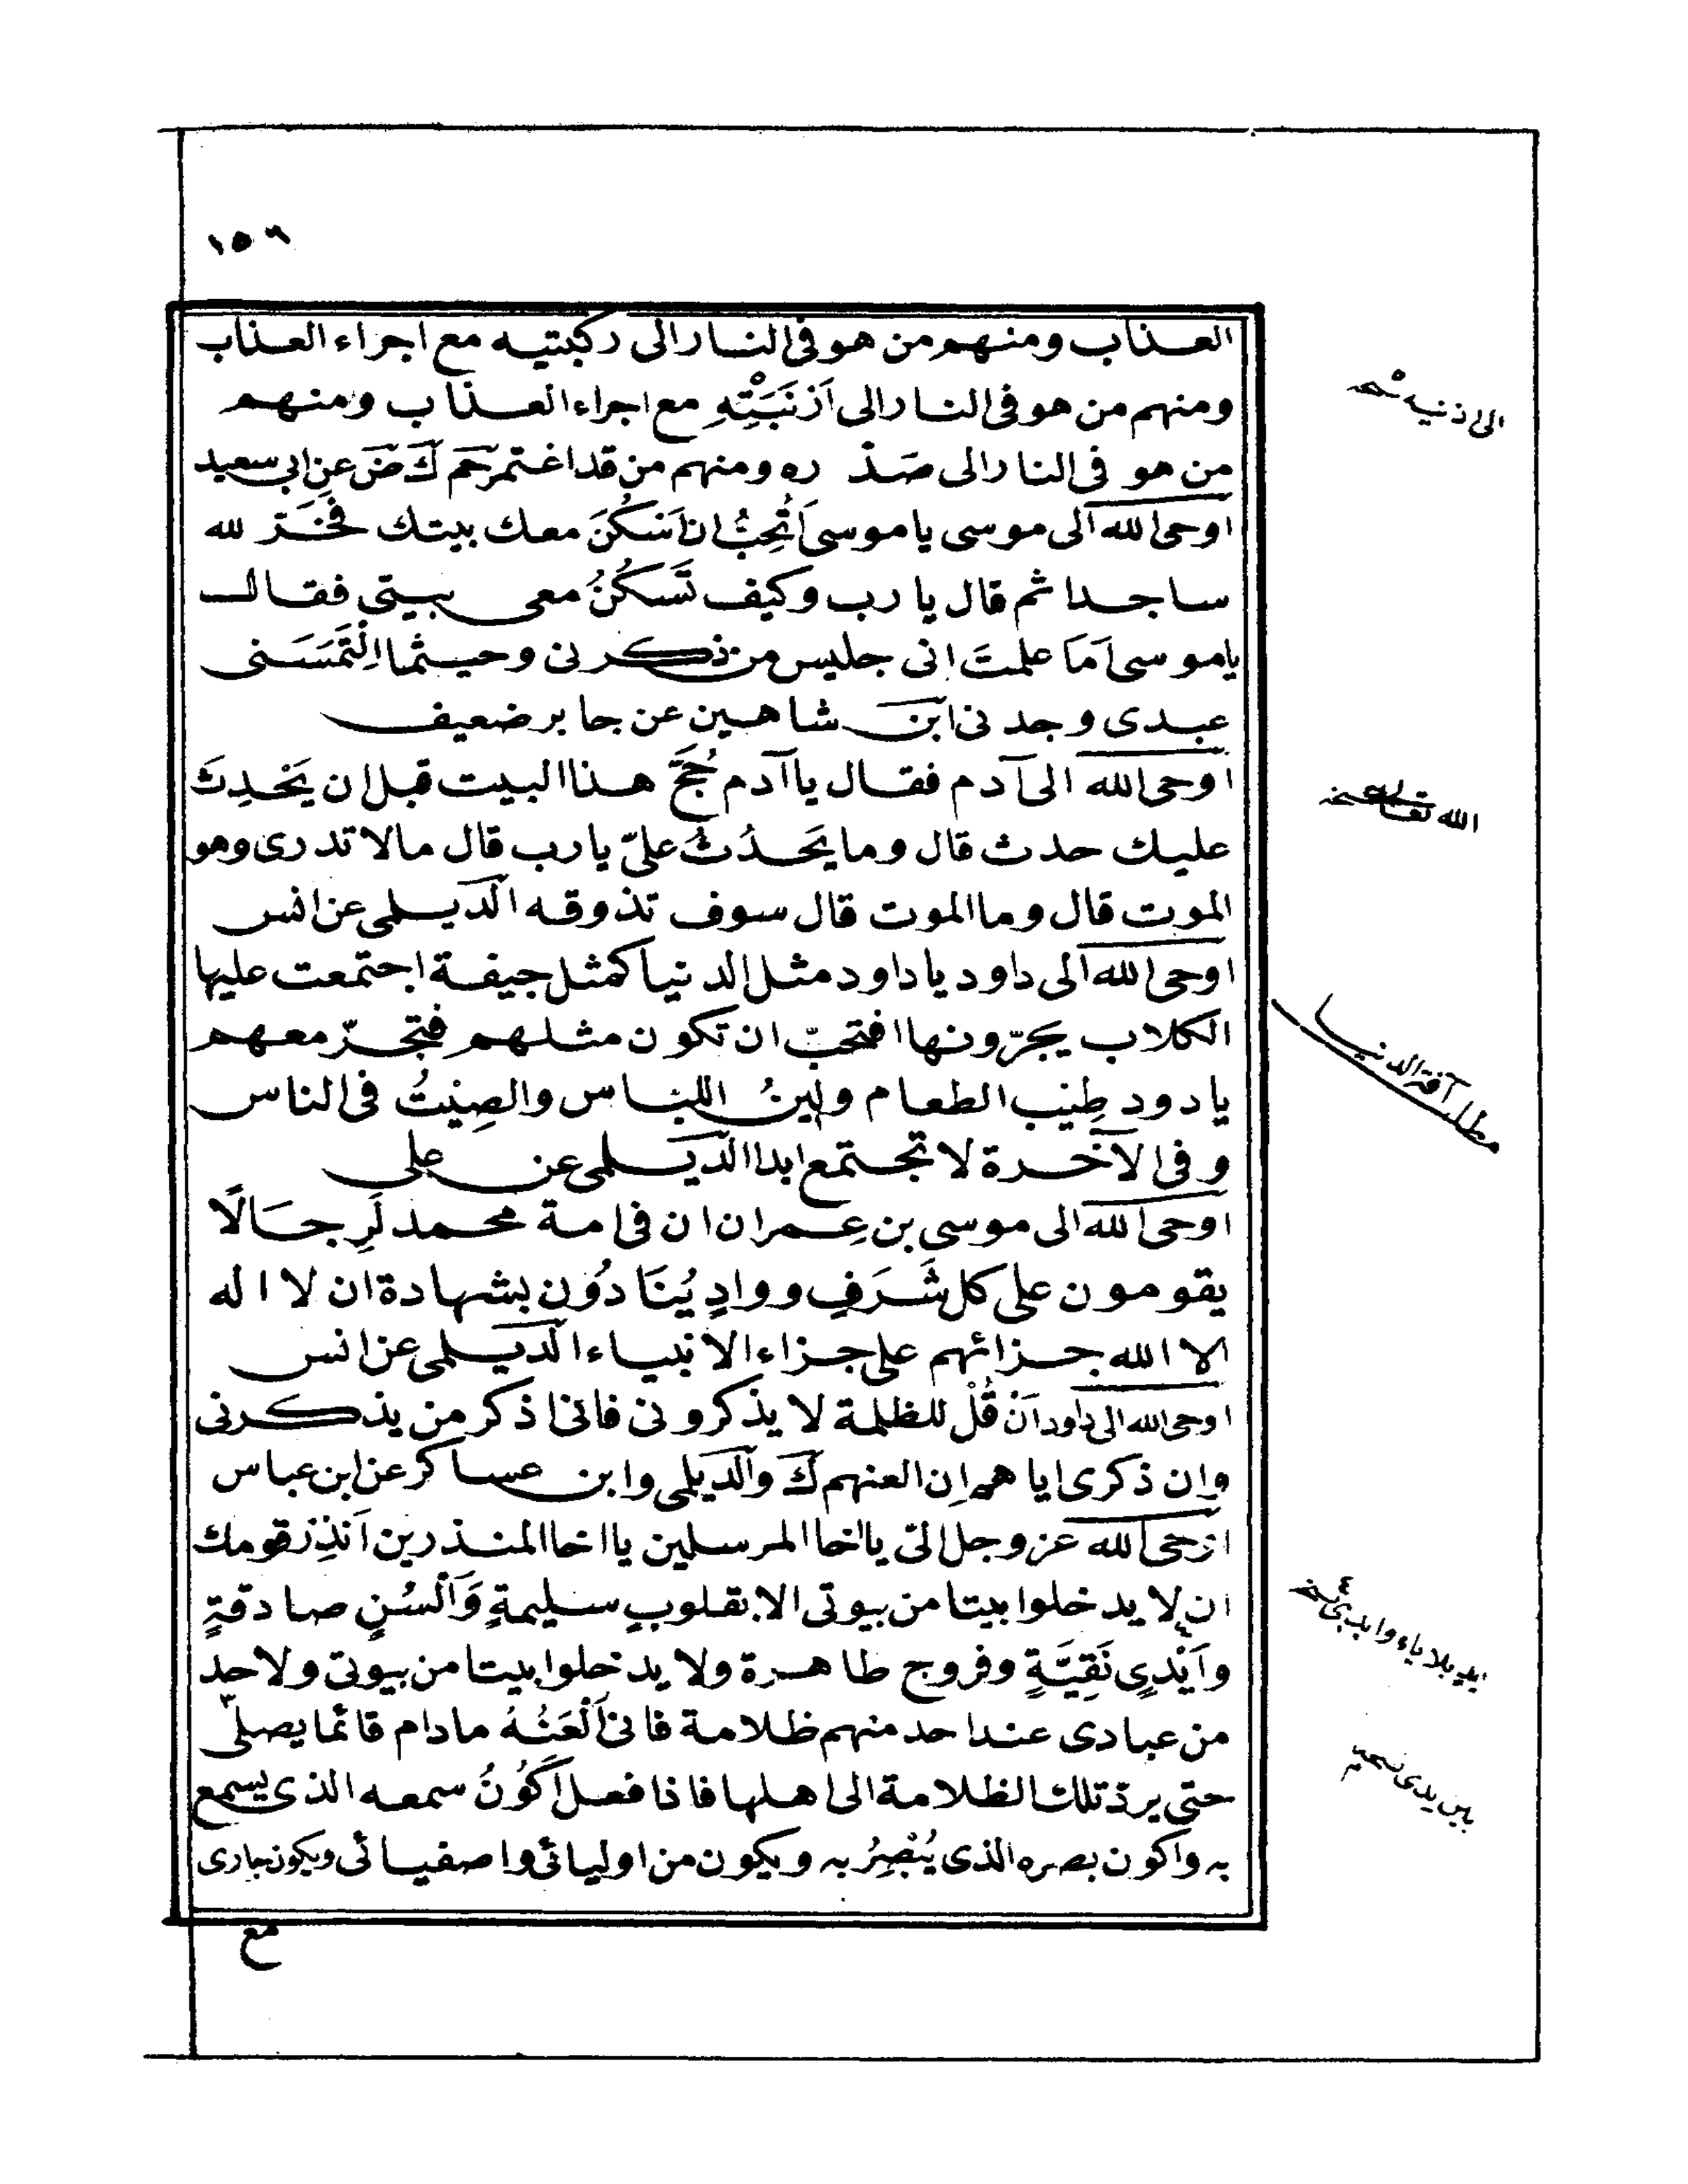 ١٥٦
العذاب ومنهم من هو فى النار الى ركبتيه مع اجراء العذاب
ومنهم من هو فى النار الى اَرْنَبَتِهِ مع اجراء العذاب ومنهم
من هو فى النار الى صدره ومنهم من قد اغتمر حم ك ض عن ابى سعيد
اوحى الله الى موسى يا موسى اَتُحِبُّ ان اَسْكُنَ معك بيتك فخَرَّ لله
ساجدا ثم قال يا رب وكيف تَسْكُنُ معى بيتى فقال
ياموسى اَمَا علمتَ انى جليس من ذكرنى وحيثما اِلْتَمَسَنى
عبدى وجدنى ابن شاهين عن جابر ضعيف
اوحى الله الى آدم فقال يا آدم حُجَّ هذا البيت قبل ان يَحْدِثَ
عليك حدث قال وما يَحْدُثُ علىّ يا رب قال مالا تدرى وهو
الموت قال وما الموت قال سوف تذوقه الديلمى عن انس
اوحى الله الى داود يا داود مثل الدنيا كمثل جيفة اجتمعت عليها
الكلاب يجرّونها افتحبّ ان تكون مثلهم فتجرّ معهم
يا دود طِيب الطعام ولِينُ اللباس والصِيتُ فى الناس
وفى الآخرة لا تجتمع ابدا الدّيلمى عن على
اوحى الله الى موسى بن عِمران ان فى امة محمد لَرِجَالًا
يقومون على كل شَرَفٍ ووادٍ يُنَادُون بشهادة ان لا اله
الا الله جزائهم على جزاء الانبياء الديلمى عن انس
اوحى الله الى داود اَنْ قُلْ للظلمة لا يذكرونى فانى اذكر من يذكرنى
وان ذكرى اياهم ان العنهم ك والديلمى وابن عساكر عن ابن عباس
اوحى الله عز وجل الىّ يا اخا المرسلين يا اخا المنذرين اَنْذِرْ قومك
ان لا يدخلوا بيتا من بيوتى الا بقلوبٍ سليمةٍ وَاَلْسُنٍ صادقةٍ
واَيْدِى نَقِيَّةٍ وفروج طاهرة ولا يدخلوا بيتا من بيوتى ولاحد
من عبادى عند احد منهم ظلامة فانى اَلْعَنُهُ مادام قائما يصلّى
حتى يردّ تلك الظلامة الى اهلها فاذا فعل اَكُونُ سمعه الذى يسمع
به واكون بصره الذى يُبْصِرُ به ويكون من اوليائى واصفيائى ويكون جارى
مع
الى اذنيه
الله تعالى
مطلب آفة الدنيا
ايد بلا ياء
بين يدى